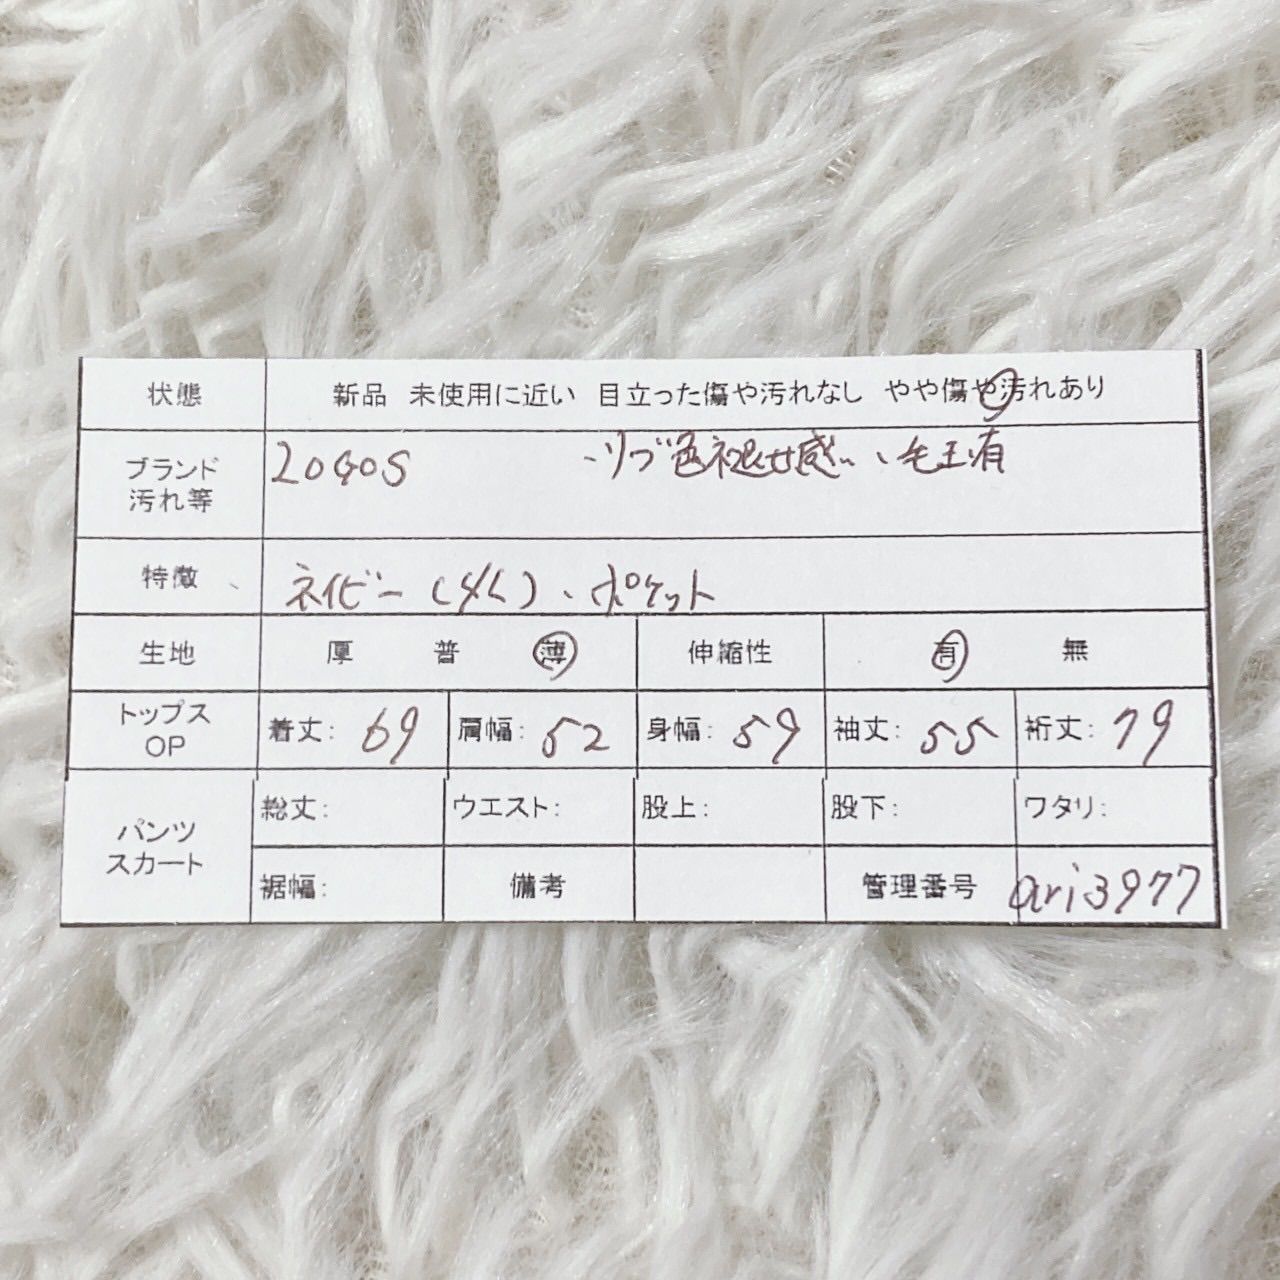 状態 新品 未使用に近い 目立った傷や汚れなし やや傷や汚れあり
ブランド
汚れ等
LOGOS ・リブ色褪せ感、毛玉有
特徴 ネイビー( )、ポケット
生地 厚 普 薄 伸縮性 有 無
トップス
OP
着丈: 69 肩幅: 52 身幅: 59 袖丈: 55 裄丈: 79
パンツ
スカート
総丈: ウエスト: 股上: 股下: ワタリ:
裾幅: 備考 管理番号 ari3977